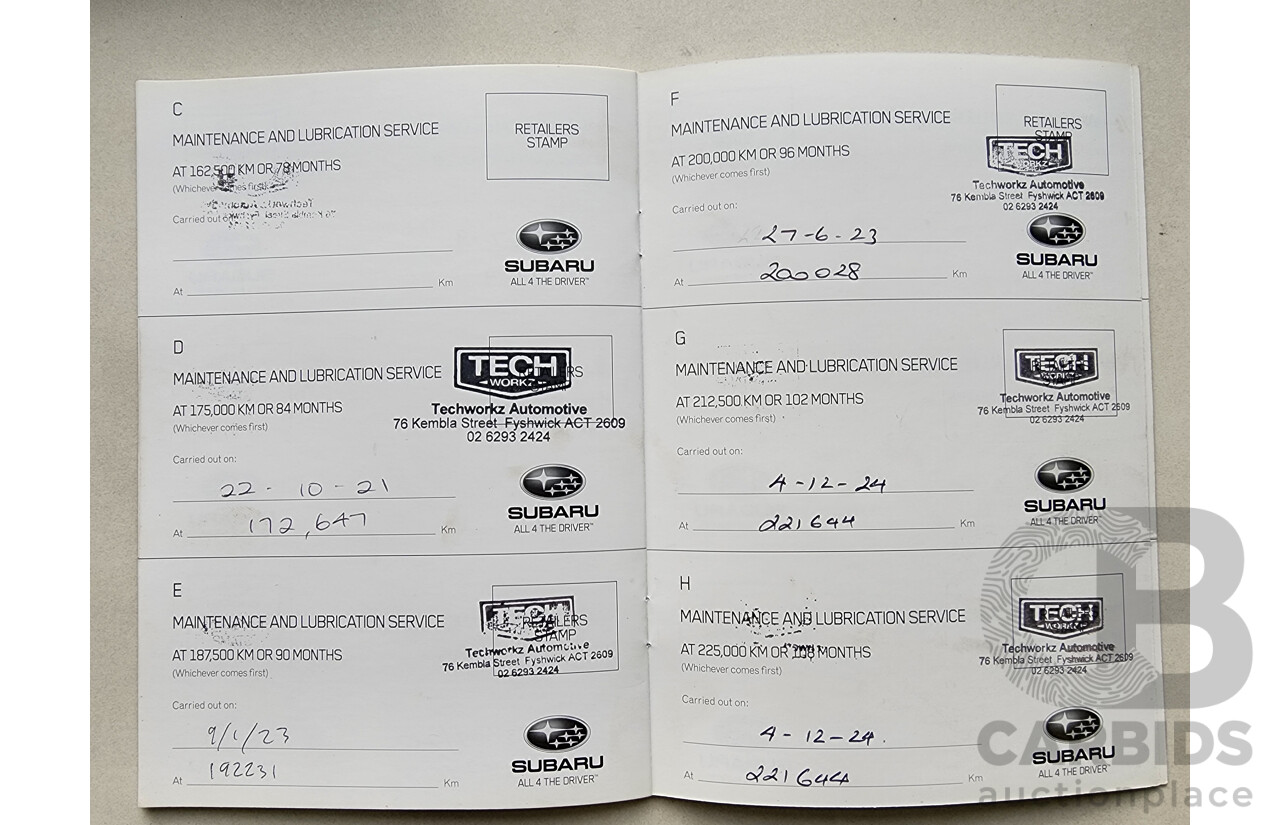 C
MAINTENANCE AND LUBRICATION SERVICE
RETAILERS
STAMP
AT 162,500 KM OR 78 MONTHS
(Whichever comes first)
Carried out on:
At Km
SUBARU
ALL 4 THE DRIVER™
D
MAINTENANCE AND LUBRICATION SERVICE
TECH
WORKZ
AT 175,000 KM OR 84 MONTHS
(Whichever comes first)
Techworkz Automotive
76 Kembla Street Fyshwick ACT 2609
02 6293 2424
Carried out on:
22 - 10 - 21
At 172,647 Km
SUBARU
ALL 4 THE DRIVER™
E
MAINTENANCE AND LUBRICATION SERVICE
TECH
RETAILERS
STAMP
AT 187,500 KM OR 90 MONTHS
(Whichever comes first)
Techworkz Automotive
76 Kembla Street Fyshwick ACT 2609
02 6293 2424
Carried out on:
9/1/23
At 192231 Km
SUBARU
ALL 4 THE DRIVER™
F
MAINTENANCE AND LUBRICATION SERVICE
RETAILERS
STAMP
TECH
WORKZ
AT 200,000 KM OR 96 MONTHS
(Whichever comes first)
Techworkz Automotive
76 Kembla Street Fyshwick ACT 2609
02 6293 2424
Carried out on:
27-6-23
At 200028 Km
SUBARU
ALL 4 THE DRIVER™
G
MAINTENANCE AND LUBRICATION SERVICE
TECH
AT 212,500 KM OR 102 MONTHS
(Whichever comes first)
Techworkz Automotive
76 Kembla Street Fyshwick ACT 2609
02 6293 2424
Carried out on:
4-12-24
At 221644 Km
SUBARU
ALL 4 THE DRIVER™
H
MAINTENANCE AND LUBRICATION SERVICE
TECH
WORKZ
AT 225,000 KM OR 108 MONTHS
(Whichever comes first)
Techworkz Automotive
76 Kembla Street Fyshwick ACT 2609
02 6293 2424
Carried out on:
4-12-24.
At 221644 Km
SUBARU
ALL 4 THE DRIVER™
CARBIDS
auctionplace